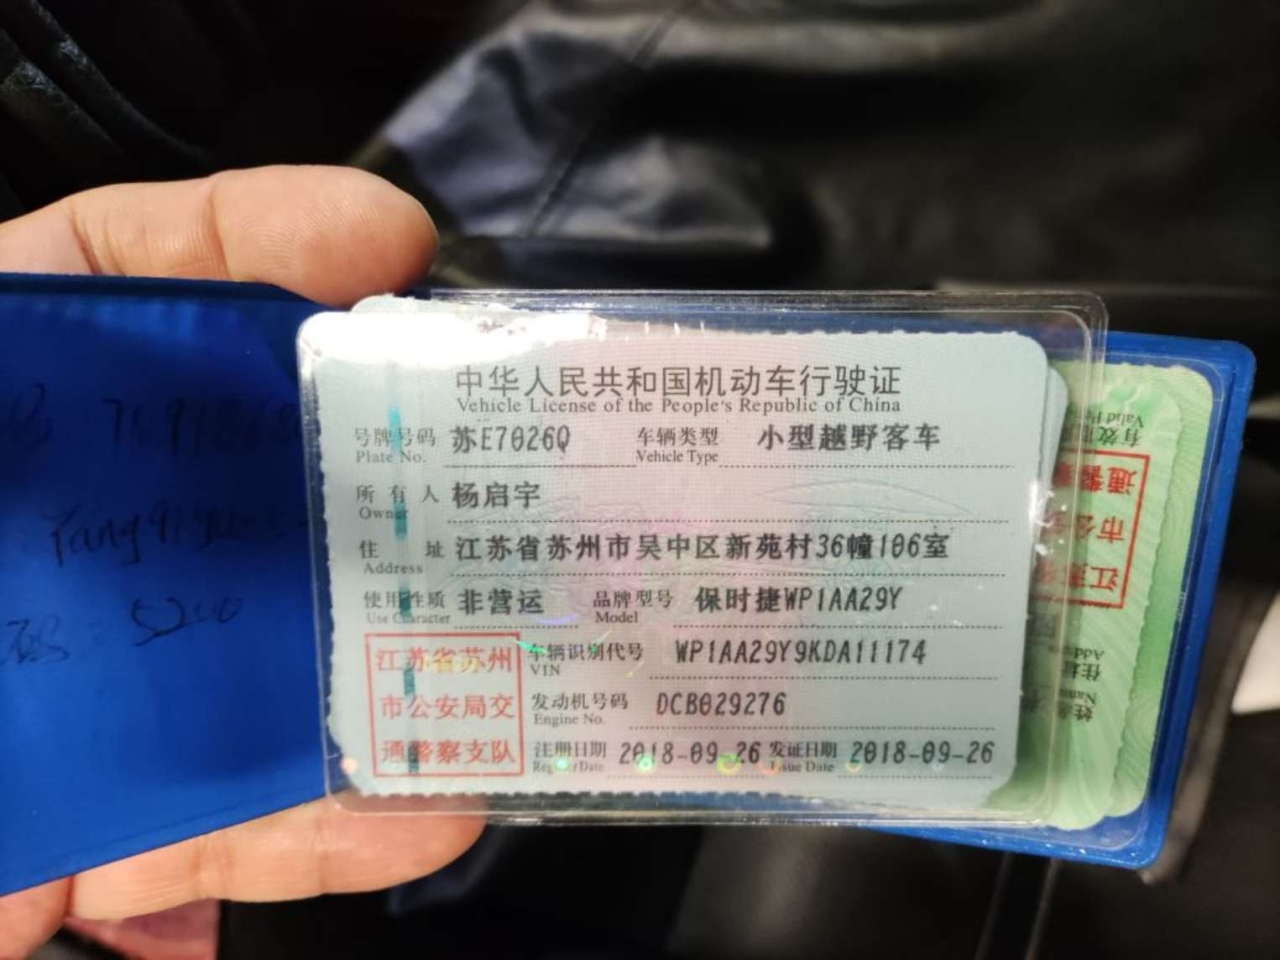 中华人民共和国机动车行驶证
Vehicle License of the People's Republic of China
号牌号码 苏E7026Q 车辆类型 小型越野客车
Plate No. Vehicle Type
所有人 杨启宇
Owner
住址 江苏省苏州市吴中区新苑村36幢106室
Address
使用性质 非营运 品牌型号 保时捷WP1AA29Y
Use Character Model
江苏省苏州
市公安局交
通警察支队
车辆识别代号 WP1AA29Y9KDA11174
VIN
发动机号码 DCB029276
Engine No.
注册日期 2018-09-26 发证日期 2018-09-26
Register Date Issue Date
5200
有效
Valid
通警
市公
江苏
住址
Add
姓名
Name